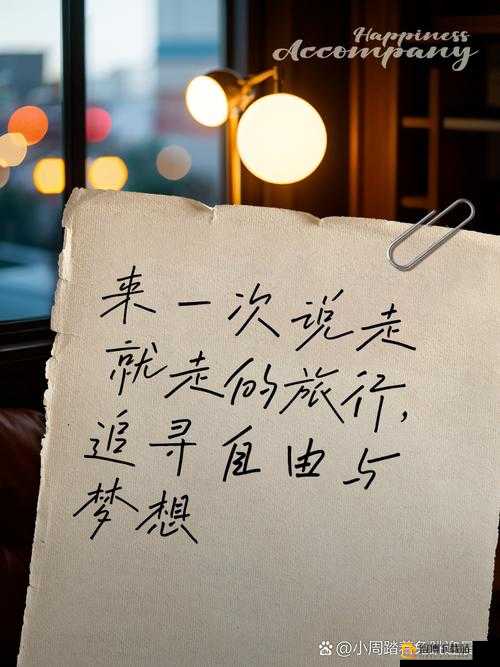 Happiness
Accompany
来一次说走
就走的旅行,
追寻自由与
梦想
@小周踏着